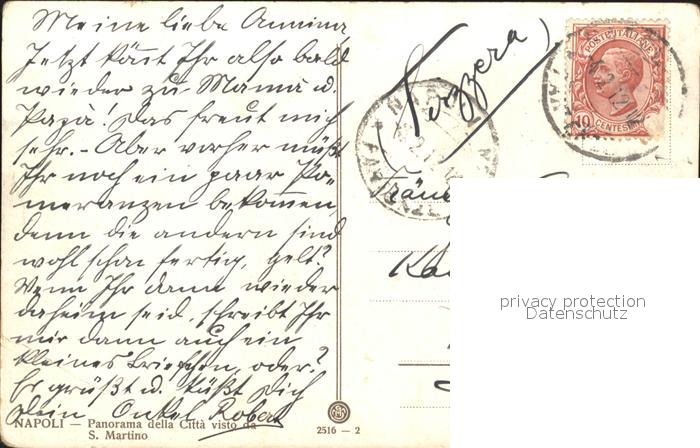 Meine liebe Annina
Jetzt kämt Ihr also bald
wieder zu Mama u.
Papa! Das freut mich
sehr. – Aber vorher müßt
Ihr noch ein paar Po-
meranzen bekommen,
denn die andern sind
wohl schon fertig, gelt?
Wenn Ihr dann wieder
daheim seid, schreibt Ihr
mir dann auch ein
kleines Briefchen, oder?
Es grüßt u. küßt Dich
Dein Onkel Robert
NAPOLI — Panorama della Città visto da
S. Martino
2516 — 2
(Svizzera)
POSTE ITALIANE
10 CENTESIMI
privacy protection
Datenschutz